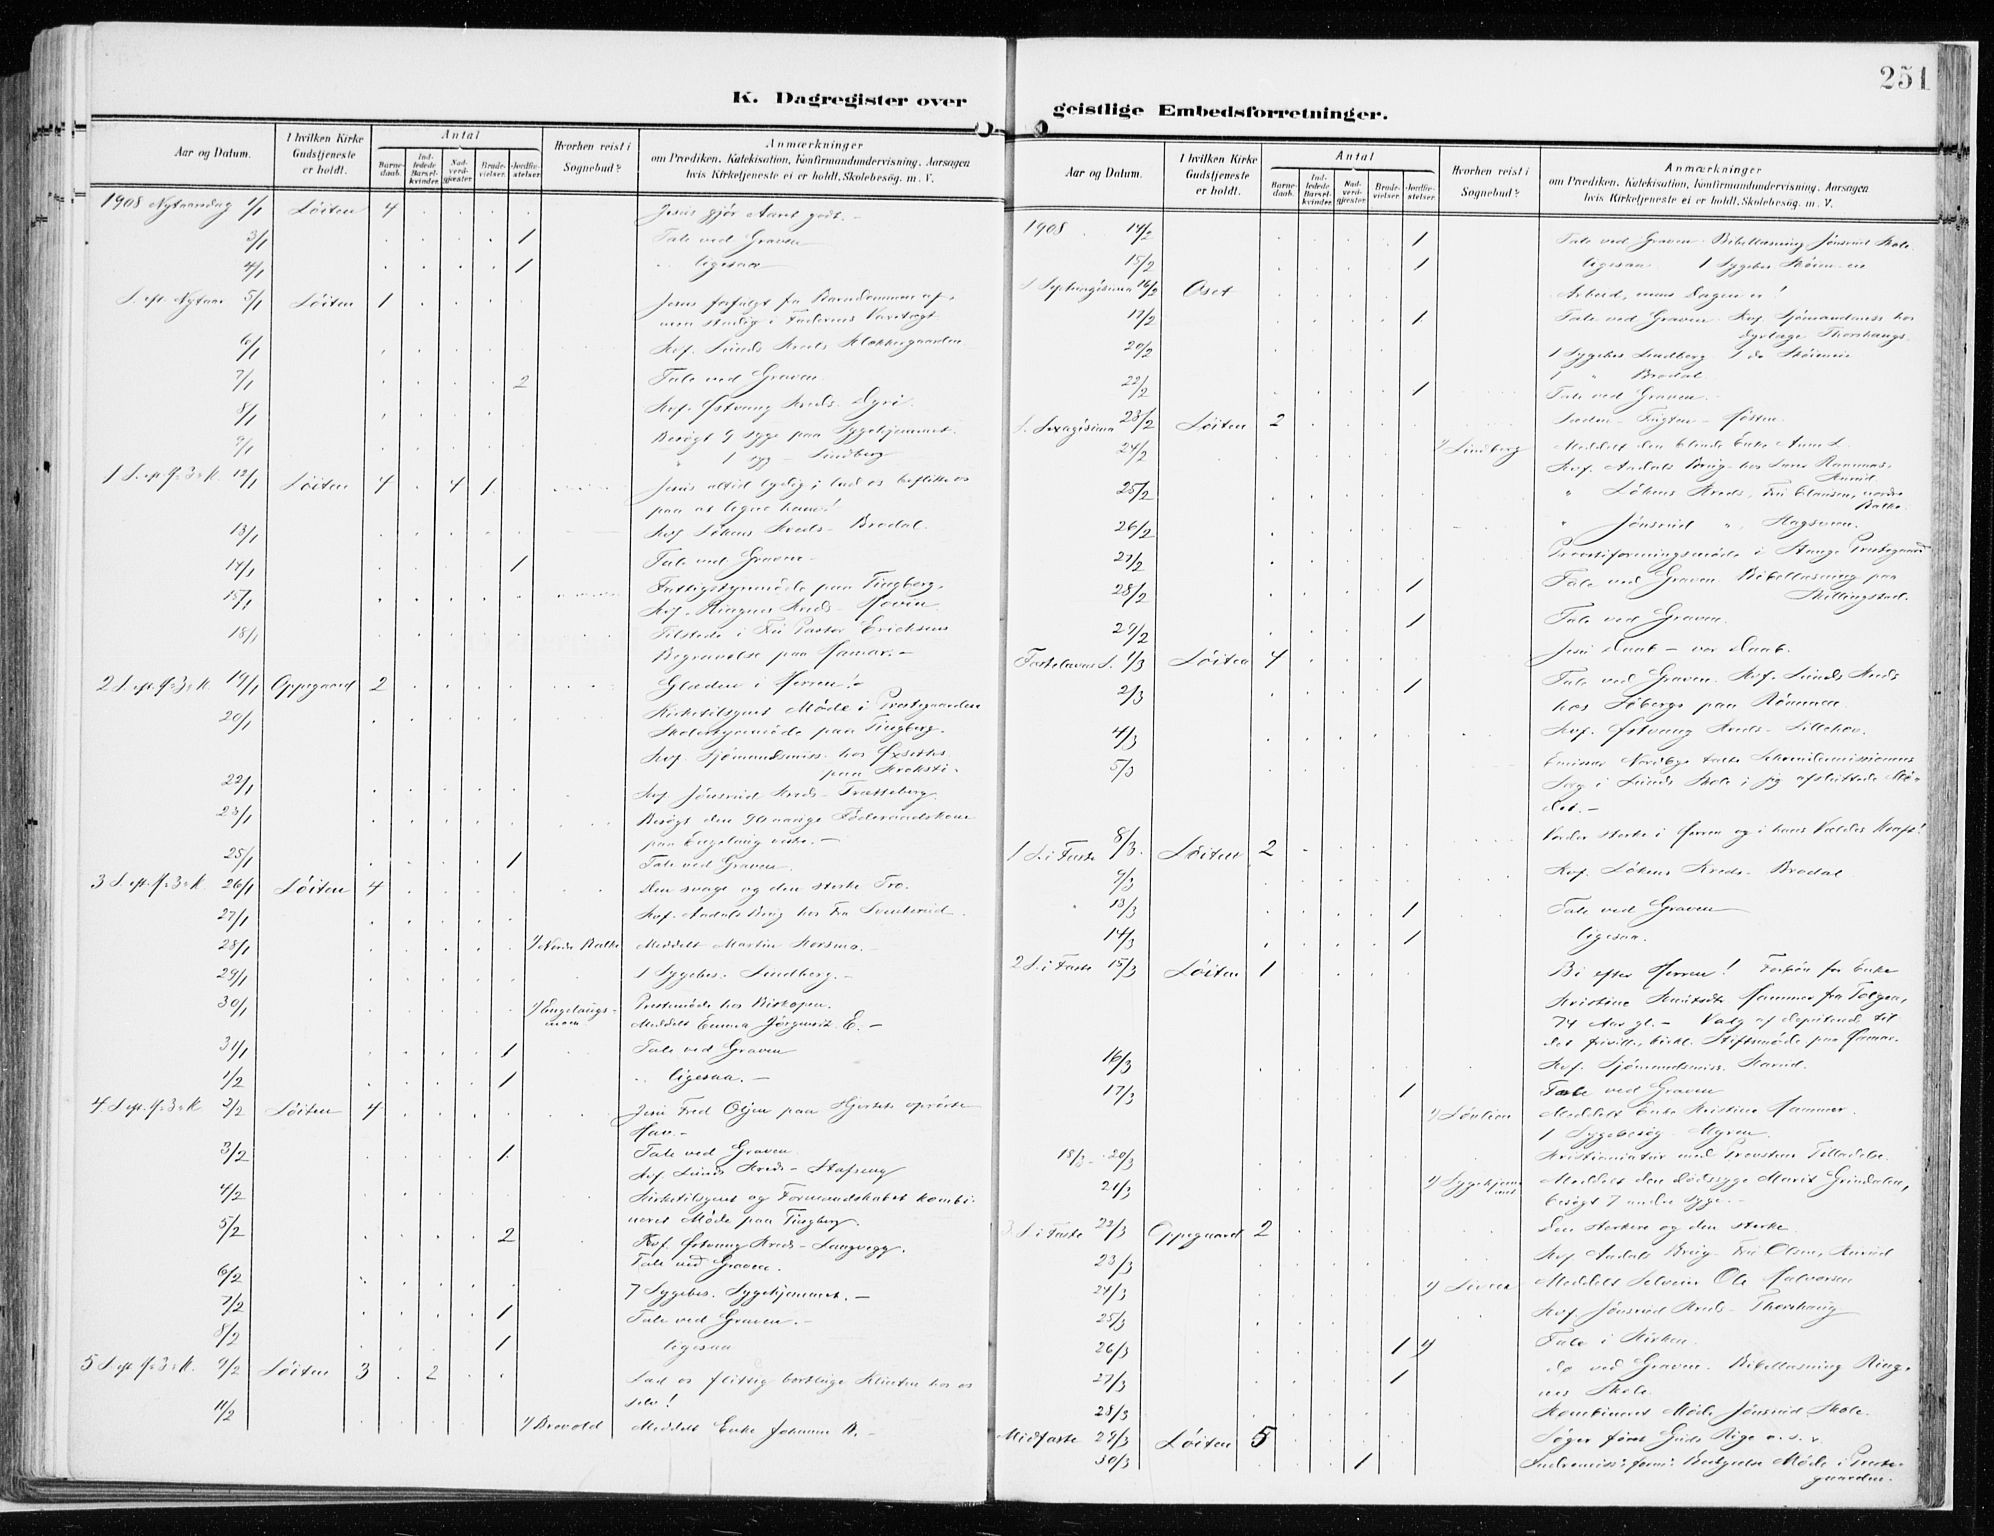 251
K. Dagregister over
geistlige Embedsforretninger.
Aar og Datum.
I hvilken Kirke Gudstjeneste er holdt.
Antal
Barnedaab.
Indledede Barselkvinder.
Nadverdgjæster.
Brudevielser.
Jordfæstelser.
Hvorhen reist i Sognebud?
Anmærkninger
om Prædiken, Katekisation, Konfirmandundervisning, Aarsagen
hvis Kirketjeneste ei er holdt, Skolebesög. m. V.
1908 Nytaarsdag 1/1 Löiten 4 Jesus gjør Aaret godt. –
3/1 1 Tale ved Graven
4/1 1 " ligesaa
S. eft. Nytaar 5/1 Löiten 1 Jesus forfulgt fra Barndommen af,
men stadig i Faderens Varetægt
6/1 Kvf. Lunds Kreds Klokkergaarden
7/1 2 Tale ved Graven
8/1 Kvf. Østvang Kreds
9/1 Besøgt 9 syge paa Sygehjemmet.
" 1 syg – Lindberg
1 S. eft. H. 3 K. 12/1 Löiten 4 4 1 Jesus altid lydig; lad os beflitte os
paa at ligne ham!
13/1 Kvf. Lökens Kreds – Brodal.
14/1 1 Tale ved Graven
15/1 Fattigstyremøde paa Tingberg.
Kvf. Ringnes Kreds – Hovin
18/1 Tilstede i Fru Pastor Ericksens
Begravelse paa Hamar. –
2 S. eft. H. 3 K. 19/1 Oppegaard 2 Glæden i Herren!
20/1 Kirketilsynets Møde i Prestegaarden
Skolestyremøde paa Tingberg.
Kvf. Sjømandsmiss. hos
paa
22/1 Kvf. Jönsrud Kreds – Trætteberg.
23/1 Besøgt den 90 aarige Føderaadskone
paa
25/1 1 Tale ved Graven
3 S. eft. H. 3 K. 26/1 Löiten 4 Den svage og den sterke Tro.
27/1 Kvf. Aadals Brug hos Fru
28/1 1/ Nordre Balke Meddelt Martin
29/1 1 Sygebes. Lindberg. –
30/1 1/ Engelaugs- Prestemøde hos Biskopen.
Meddelt Emma Jørgensdt. E. –
31/1 1 Tale ved Graven
1/2 1 " ligesaa. –
4 S. eft. H. 3 K. 2/2 Löiten 4 Jesu Fred Oljen paa Hjertets oprørte
Hav. –
3/2 1 Tale ved Graven
Kvf. Lunds Kreds –
4/2 Kirketilsynet og Formandskabet kombi-
neret Møde paa Tingberg.
5/2 2 Kvf. Østvang Kreds –
Tale ved Graven.
6/2 7 Sygebes. Sygehjemmet. –
7/2 1 Tale ved Graven. –
8/2 1 ligesaa
5 S. eft. H. 3 K. 9/2 Löiten 3 2 Lad os flittig bortluge Klinten hos os
selv!
11/2 1/ Brovold Meddelt Enke Johanne B. –
Aar og Datum.
I hvilken Kirke Gudstjeneste er holdt.
Antal
Barnedaab.
Indledede Barselkvinder.
Nadverdgjæster.
Brudevielser.
Jordfæstelser.
Hvorhen reist i Sognebud?
Anmærkninger
om Prædiken, Katekisation, Konfirmandundervisning, Aarsagen
hvis Kirketjeneste ei er holdt, Skolebesög. m. V.
1908 14/2 1 Tale ved Graven. Bibellæsning Jönsrud Skole.
15/2 1 ligesaa 1 Sygebes.
S. Septuagesima 16/2 Oset Arbeid, mens Dagen er!
17/2 1 Tale ved Graven. Kvf. Sjømandsmiss. hos
Dyrlæge Thorshaugs.
20/2 1 Sygebes. Lindberg. 1 do
1 " Brodal.
22/2 1 Tale ved Graven
S. Sexagesima 23/2 Löiten 2 Sæden – Frugten – Høsten.
24/2 1/ Lindberg Meddelt den blinde Enke Anne L.
Kvf. Aadals Brug hos
25/2 " Lökens Kreds, Fru Clausen, nordre
Balke.
26/2 " Jönsrud ",
27/2 Provstiforeningsmøde i Stange Prestegaard
28/2 1 Tale ved Graven. Bibellæsning paa
Skillingstad.
29/2 1 Tale ved Graven.
Fastelavns S. 1/3 Löiten 4 Jesu Daab – vor Daab.
2/3 1 Tale ved Graven. Kvf. Lunds Kreds
hos Söbergs paa Rømmen.
4/3 Kvf. Østvang Kreds – Lillehov.
5/3
Sag i Lunds Skole; jeg afsluttede Mø-
det. –
1 S. i Faste 8/3 Löiten 2 Vorder sterke i Herren og i hans Vældes Kraft!
9/3 Kvf. Lökens Kreds – Brodal
13/3 1 Tale ved Graven
14/3 1 ligesaa.
2 S. i Faste 15/3 Löiten 1 Bi efter Herren! Forbøn for Enke
Kristine Hammer fra Tolgen,
74 Aar gl. – Valg af deputerede til
det frivill. kirkl. Stiftsmøde paa Hamar.
16/3 Kvf. Sjømandsmiss.
17/3 1 Tale ved Graven
1/ Løvlien Meddelt Enke Kristine Hammer.
1 Sygebesøg – Myren.
18/3 – 20/3 Kristianiatur med Provstens Tilladelse.
21/3 1/ Sygehjem- met Meddelt den dødssyge Marit Grindalen,
besøgt 7 andre syge. –
3 S. i Faste 22/3 Oppegaard 2 Den sterkere og den sterke
23/3 Kvf. Aadals Brug – Fru Olsen,
24/3 Meddelt Ole Halvorsen
25/3 Kvf. Jönsrud Kreds – Thorshaug
26/3 1 Tale i Kirken.
27/3 1 do ved Graven. Bibellæsning Ring-
nes Skole.
28/3 Kombineret Møde Jönsrud Skole.
Midfaste 29/3 Löiten 5 Søger først Guds Rige o. s. v.
30/3 1 Indremiss. foren. Bestyrelse Møde i Preste-
gaarden.